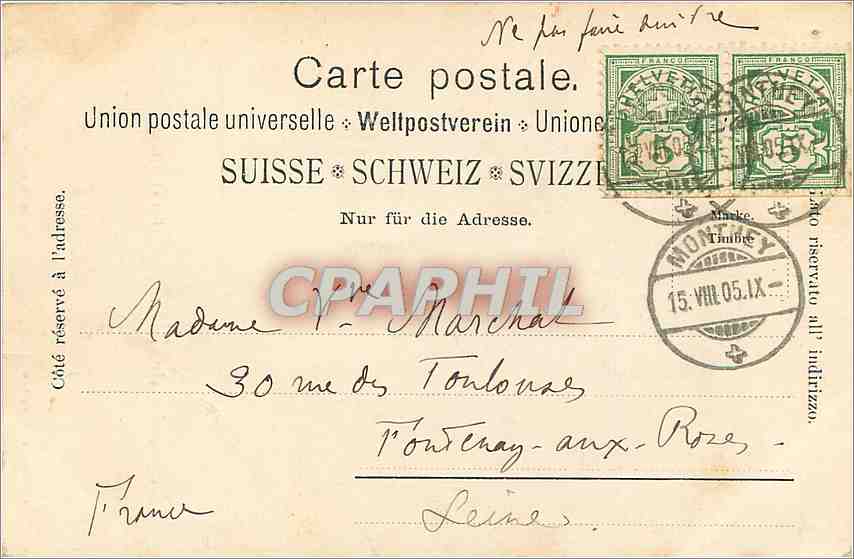 Ne pas faire suivre
Carte postale.
Union postale universelle Weltpostverein Unione
SUISSE SCHWEIZ SVIZZE
Nur für die Adresse.
FRANCO FRANCO
HELVETIA HELVETIA
5 5
Marke.
Timbre
MONTHEY
15.VIII.05.IX-
Côté réservé à l'adresse.
Lato riservato all' indirizzo.
CPAPHIL
Madame Vve Marchal
30 rue des
Fontenay-aux-Roses
Seine.
France